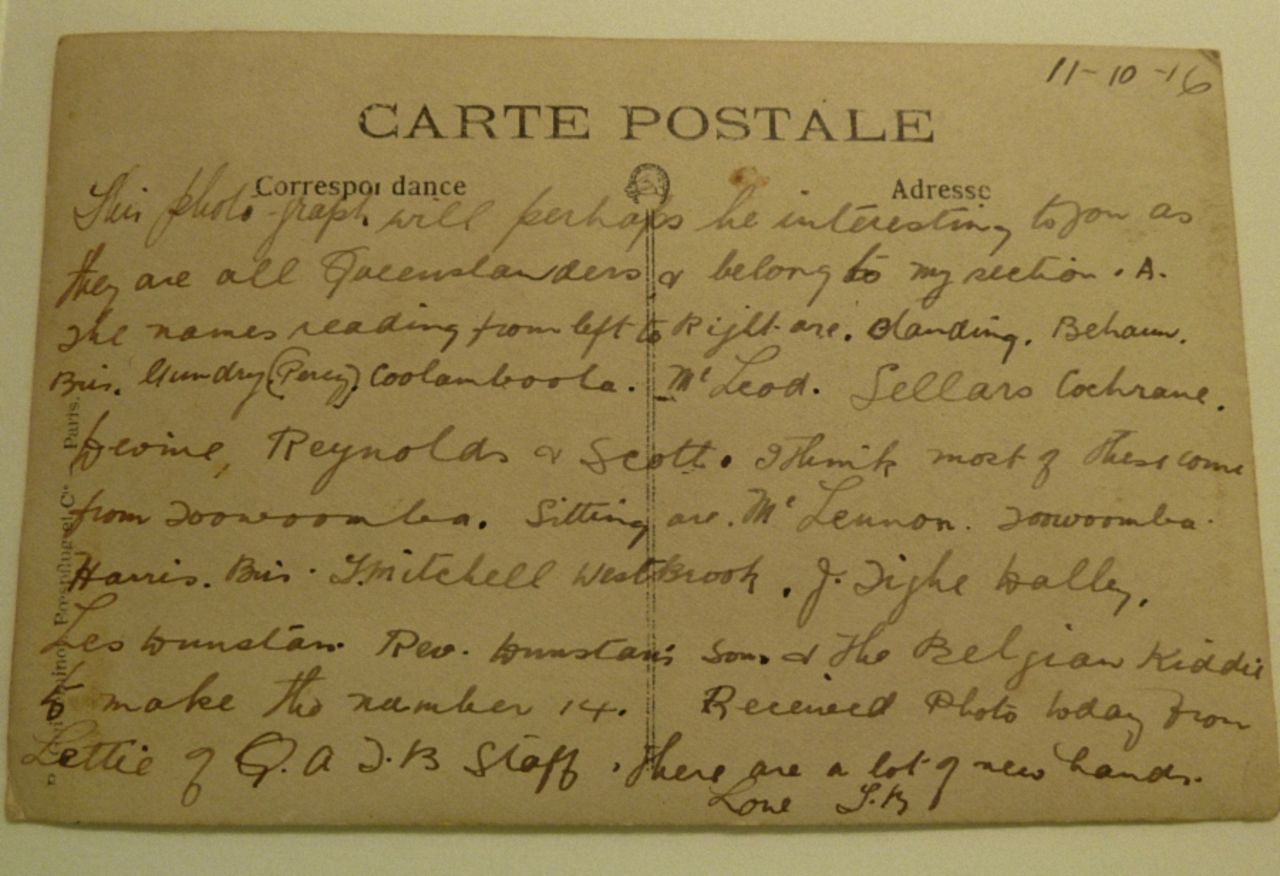 11-10-16
CARTE POSTALE
Correspondance Adresse
This photo-graph will perhaps be interesting to you as
they are all Queenslanders & belong to my section. A.
The names reading from left to Right are. Standing. Behaun.
Bris. Gundry (Percy) Coolamboola. Mc Leod. Sellars Cochrane.
Devine, Reynolds & Scott. I think most of these come
from Toowoomba. Sitting are. Mc Lennon. Toowoomba.
Harris. Bris. Mitchell WestBrook. J. Tighe Dalby.
Les Dunstan. Rev. Dunstan's Son. & The Belgian Kiddie
to make the number 14. Received Photo today from
Lettie of Q. A T. B Staff. There are a lot of new hands.
Love
et Cie Paris.